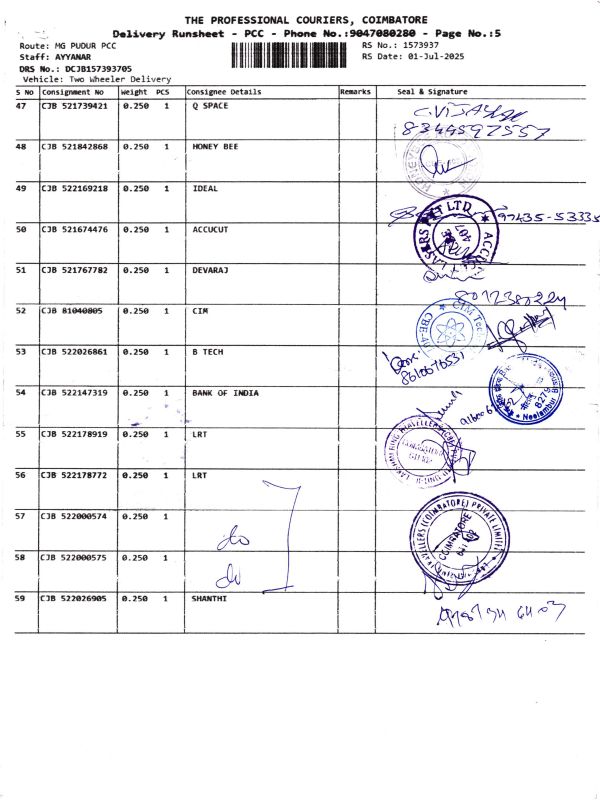 THE PROFESSIONAL COURIERS, COIMBATORE
Delivery Runsheet - PCC - Phone No.:9047080280 - Page No.:5
Route: MG PUDUR PCC
RS No.: 1573937
Staff: AYYANAR
RS Date: 01-Jul-2025
DRS No.: DCJB157393705
Vehicle: Two Wheeler Delivery
S No Consignment No Weight PCS Consignee Details Remarks Seal & Signature
47 CJB 521739421 0.250 1 Q SPACE
8344597557
48 CJB 521842868 0.250 1 HONEY BEE
49 CJB 522169218 0.250 1 IDEAL
97435-53335
50 CJB 521674476 0.250 1 ACCUCUT
51 CJB 521767782 0.250 1 DEVARAJ
52 CJB 81040805 0.250 1 CIM
53 CJB 522026861 0.250 1 B TECH
54 CJB 522147319 0.250 1 BANK OF INDIA
55 CJB 522178919 0.250 1 LRT
56 CJB 522178772 0.250 1 LRT
57 CJB 522000574 0.250 1
do
58 CJB 522000575 0.250 1
do
59 CJB 522026905 0.250 1 SHANTHI